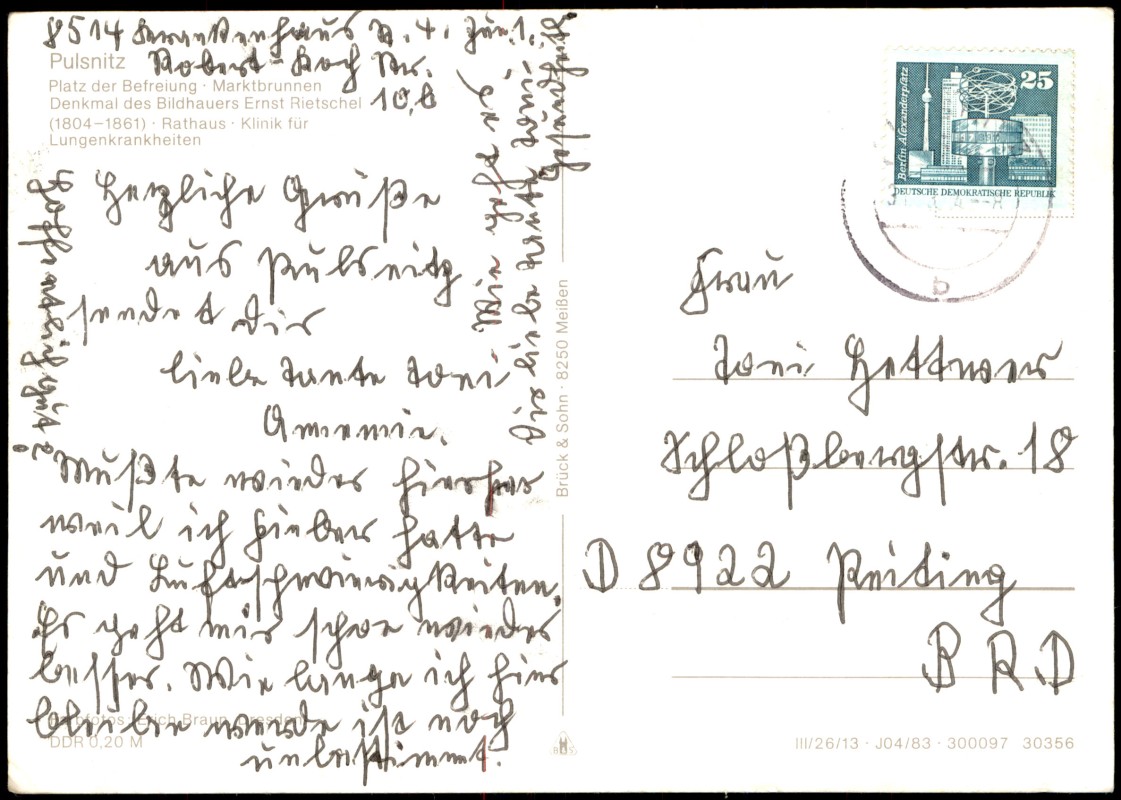 8514 Krankenhaus N. 4. Zim. 1.
Robert-Koch Str.
10b
Pulsnitz
Platz der Befreiung · Marktbrunnen
Denkmal des Bildhauers Ernst Rietschel
(1804–1861) · Rathaus · Klinik für
Lungenkrankheiten
Herzliche Grüße
aus Pulsnitz
sendet dir
liebe Tante Toni
Annemie.
Mußte wieder hierher
weil ich Fieber hatte
und Luftschwierigkeiten.
Es geht mir schon wieder
besser. Wie lange ich hier
bleiben werde ist noch
unbestimmt.
Wie geht es
Dir liebe Tante Toni
Gesundheitl.
Hoffentlich gut?
Farbfotos: Erich Braun, Dresden
DDR 0,20 M
Brück & Sohn · 8250 Meißen
B&S
25
Berlin Alexanderplatz
DEUTSCHE DEMOKRATISCHE REPUBLIK
b
Frau
Toni Hettwer
Schloßbergstr. 18
D 8922 Peiting
BRD
III/26/13 · J04/83 · 300097 30356